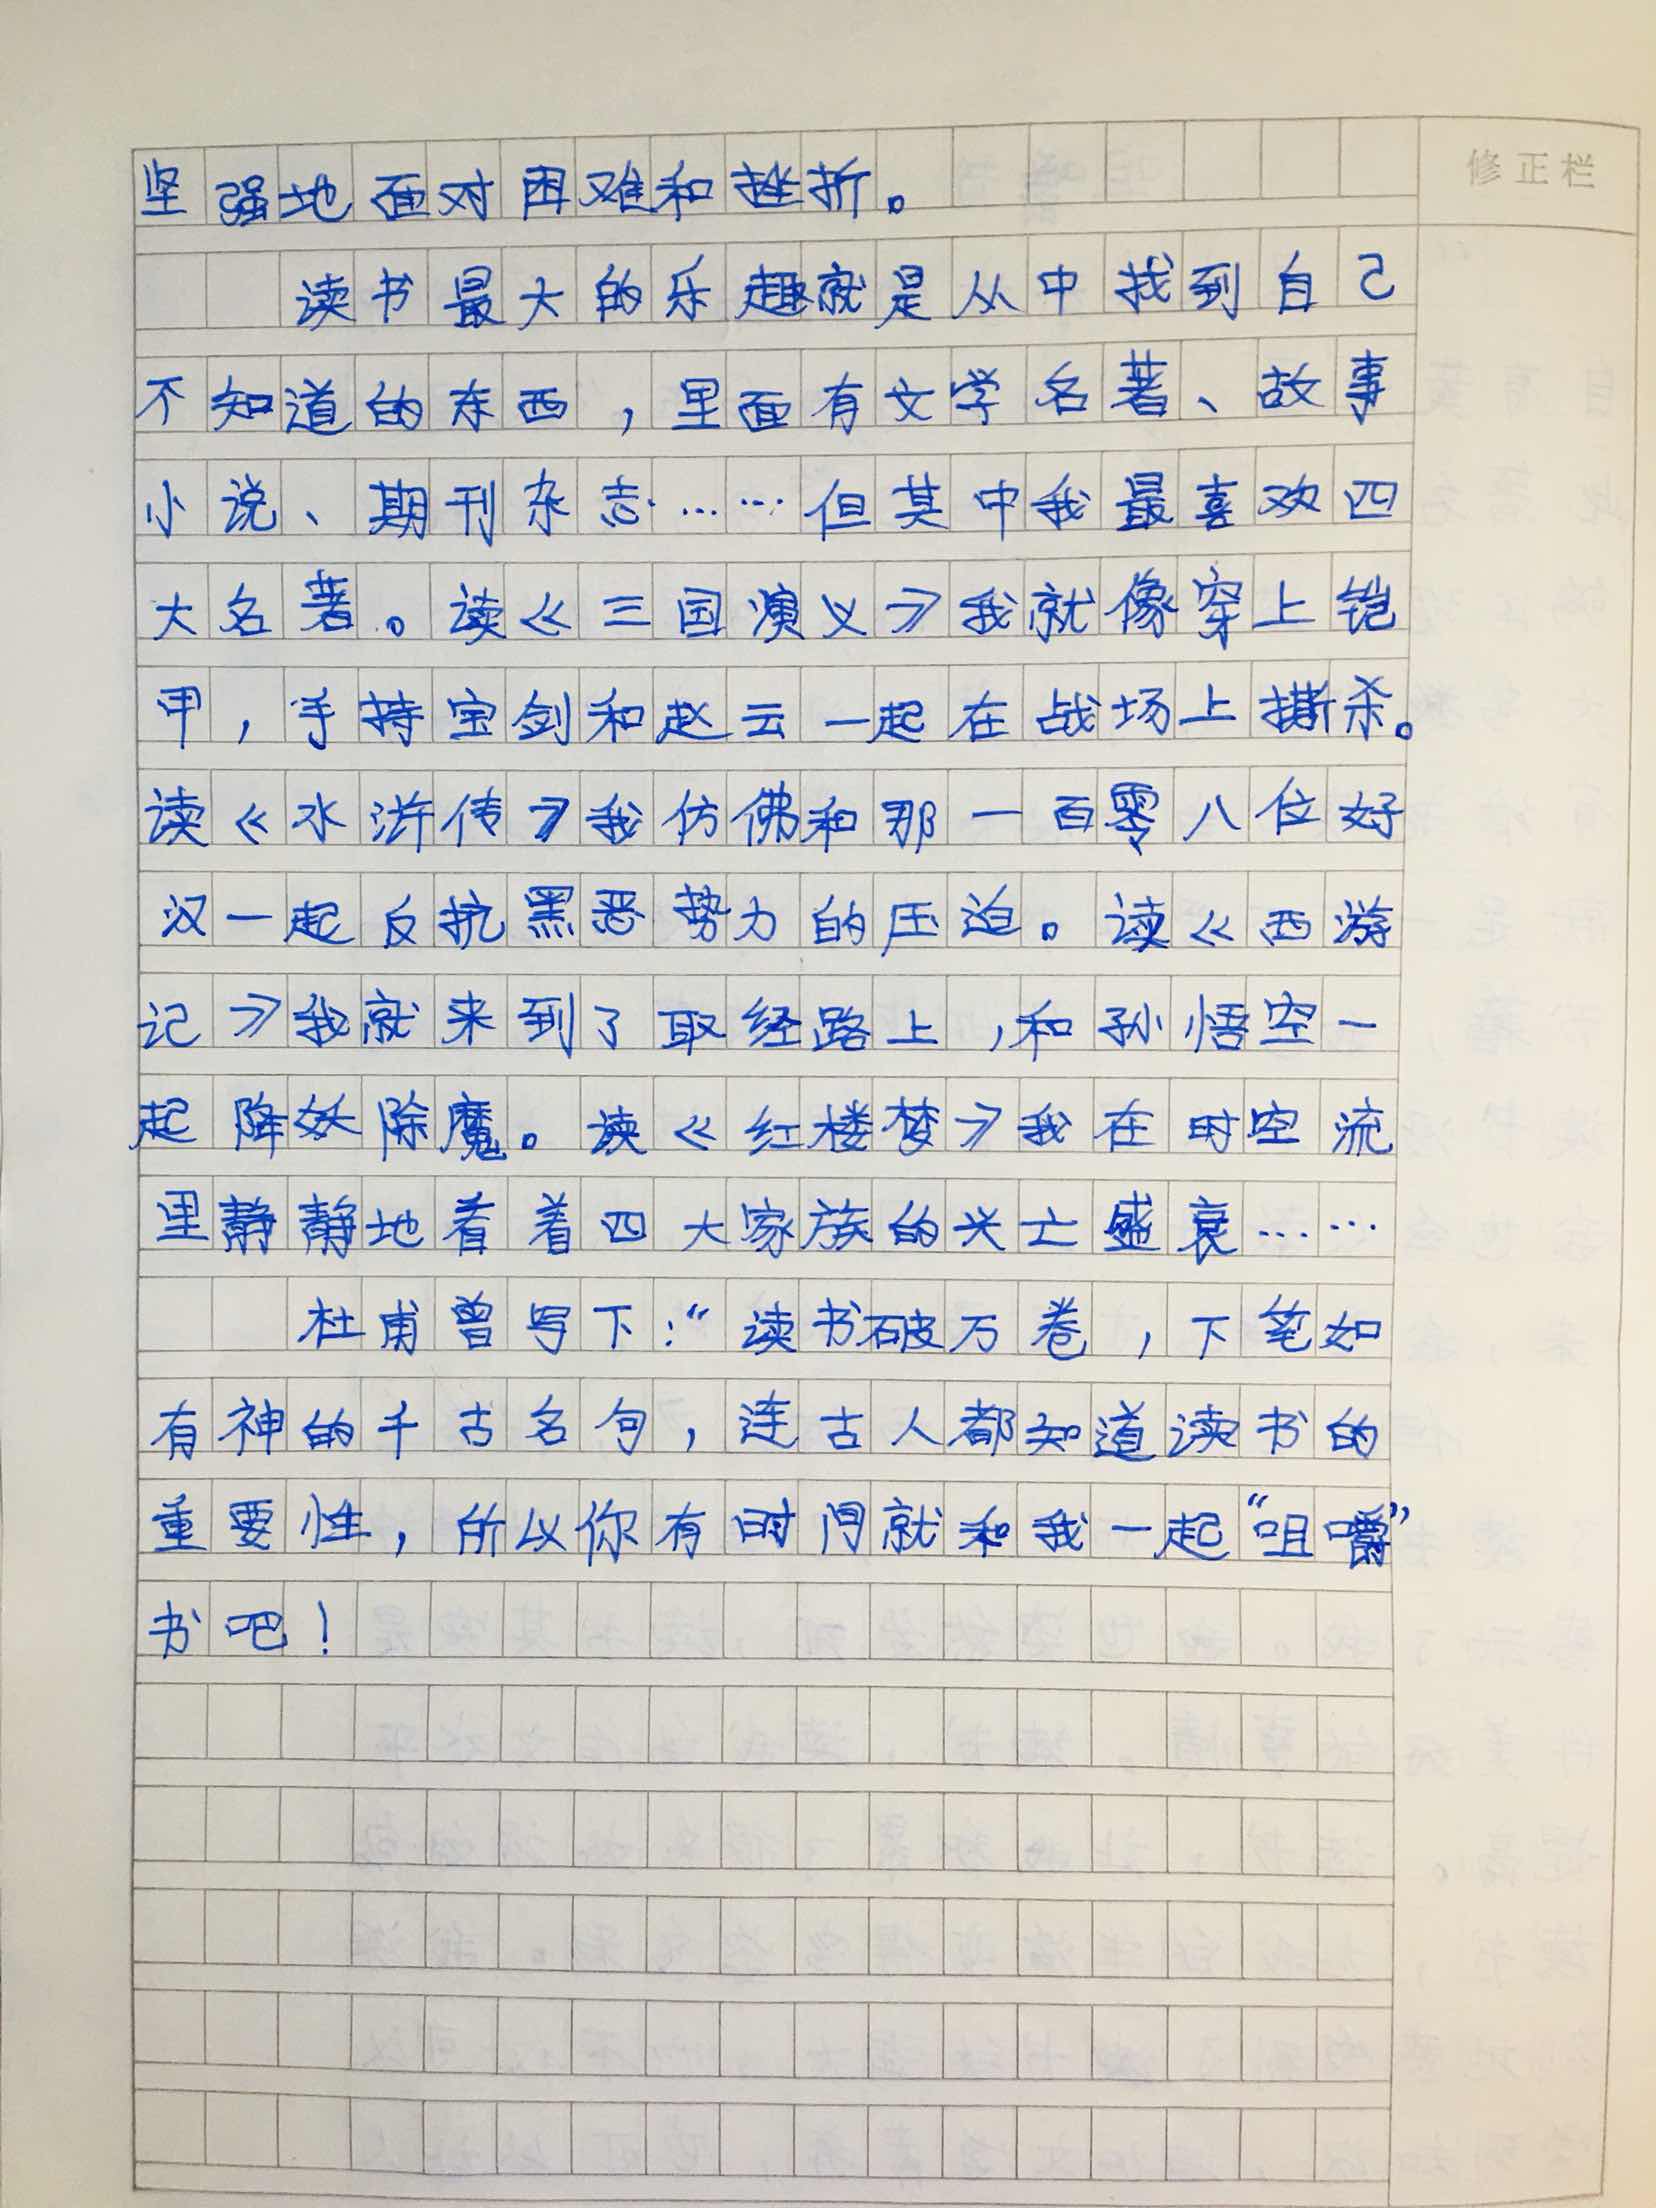 修正栏
坚强地面对困难和挫折。
读书最大的乐趣就是从中找到自己
不知道的东西，里面有文学名著、故事
小说、期刊杂志……但其中我最喜欢四
大名著。读《三国演义》我就像穿上铠
甲，手持宝剑和赵云一起在战场上撕杀。
读《水浒传》我仿佛和那一百零八位好
汉一起反抗黑恶势力的压迫。读《西游
记》我就来到了取经路上，和孙悟空一
起降妖除魔。读《红楼梦》我在时空流
里静静地看着四大家族的兴亡盛衰……
杜甫曾写下：“读书破万卷，下笔如
有神的千古名句，连古人都知道读书的
重要性，所以你有时间就和我一起“咀嚼”
书吧！